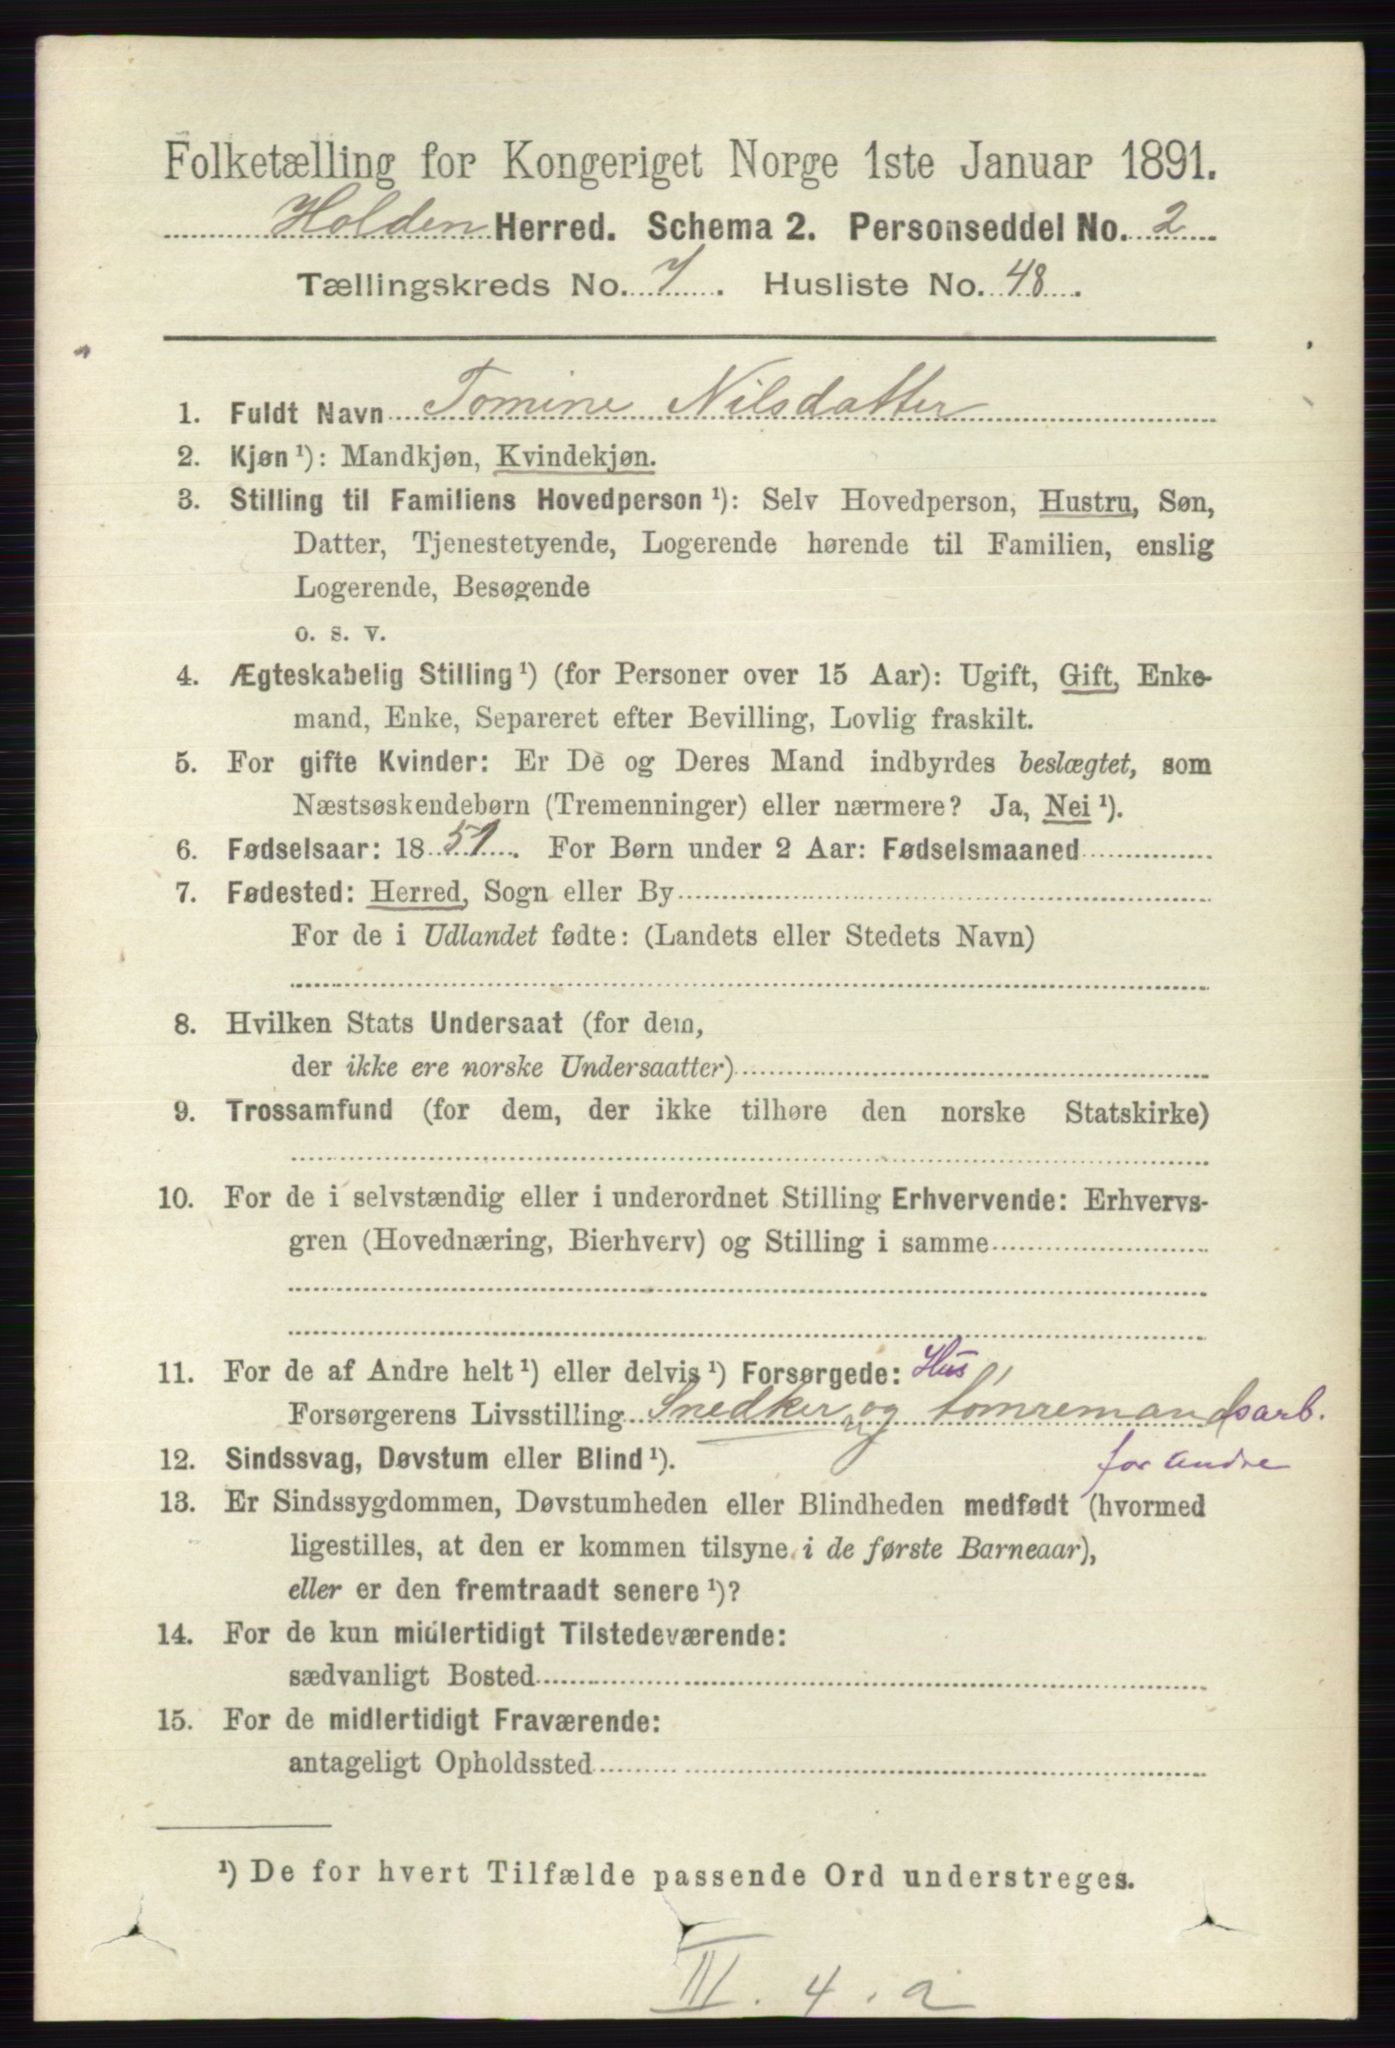 Folketælling for Kongeriget Norge 1ste Januar 1891.
Holden Herred. Schema 2. Personseddel No. 2
Tællingskreds No. 7. Husliste No. 48.
1. Fuldt Navn Tomine Nilsdatter
2. Kjøn ¹): Mandkjøn, Kvindekjøn.
3. Stilling til Familiens Hovedperson ¹): Selv Hovedperson, Hustru, Søn,
Datter, Tjenestetyende, Logerende hørende til Familien, enslig
Logerende, Besøgende
o. s. v.
4. Ægteskabelig Stilling ¹) (for Personer over 15 Aar): Ugift, Gift, Enke-
mand, Enke, Separeret efter Bevilling, Lovlig fraskilt.
5. For gifte Kvinder: Er De og Deres Mand indbyrdes beslægtet, som
Næstsøskendebørn (Tremenninger) eller nærmere? Ja, Nei ¹).
6. Fødselsaar: 1851. For Børn under 2 Aar: Fødselsmaaned
7. Fødested: Herred, Sogn eller By
For de i Udlandet fødte: (Landets eller Stedets Navn)
8. Hvilken Stats Undersaat (for dem,
der ikke ere norske Undersaatter)
9. Trossamfund (for dem, der ikke tilhøre den norske Statskirke)
10. For de i selvstændig eller i underordnet Stilling Erhvervende: Erhvervs-
gren (Hovednæring, Bierhverv) og Stilling i samme
11. For de af Andre helt ¹) eller delvis ¹) Forsørgede: Hus
Forsørgerens Livsstilling Snedker og tömremandsarb.
for andre
12. Sindssvag, Døvstum eller Blind ¹).
13. Er Sindssygdommen, Døvstumheden eller Blindheden medfødt (hvormed
ligestilles, at den er kommen tilsyne i de første Barneaar),
eller er den fremtraadt senere ¹)?
14. For de kun midlertidigt Tilstedeværende:
sædvanligt Bosted
15. For de midlertidigt Fraværende:
antageligt Opholdssted
¹) De for hvert Tilfælde passende Ord understreges.
III. 4. a